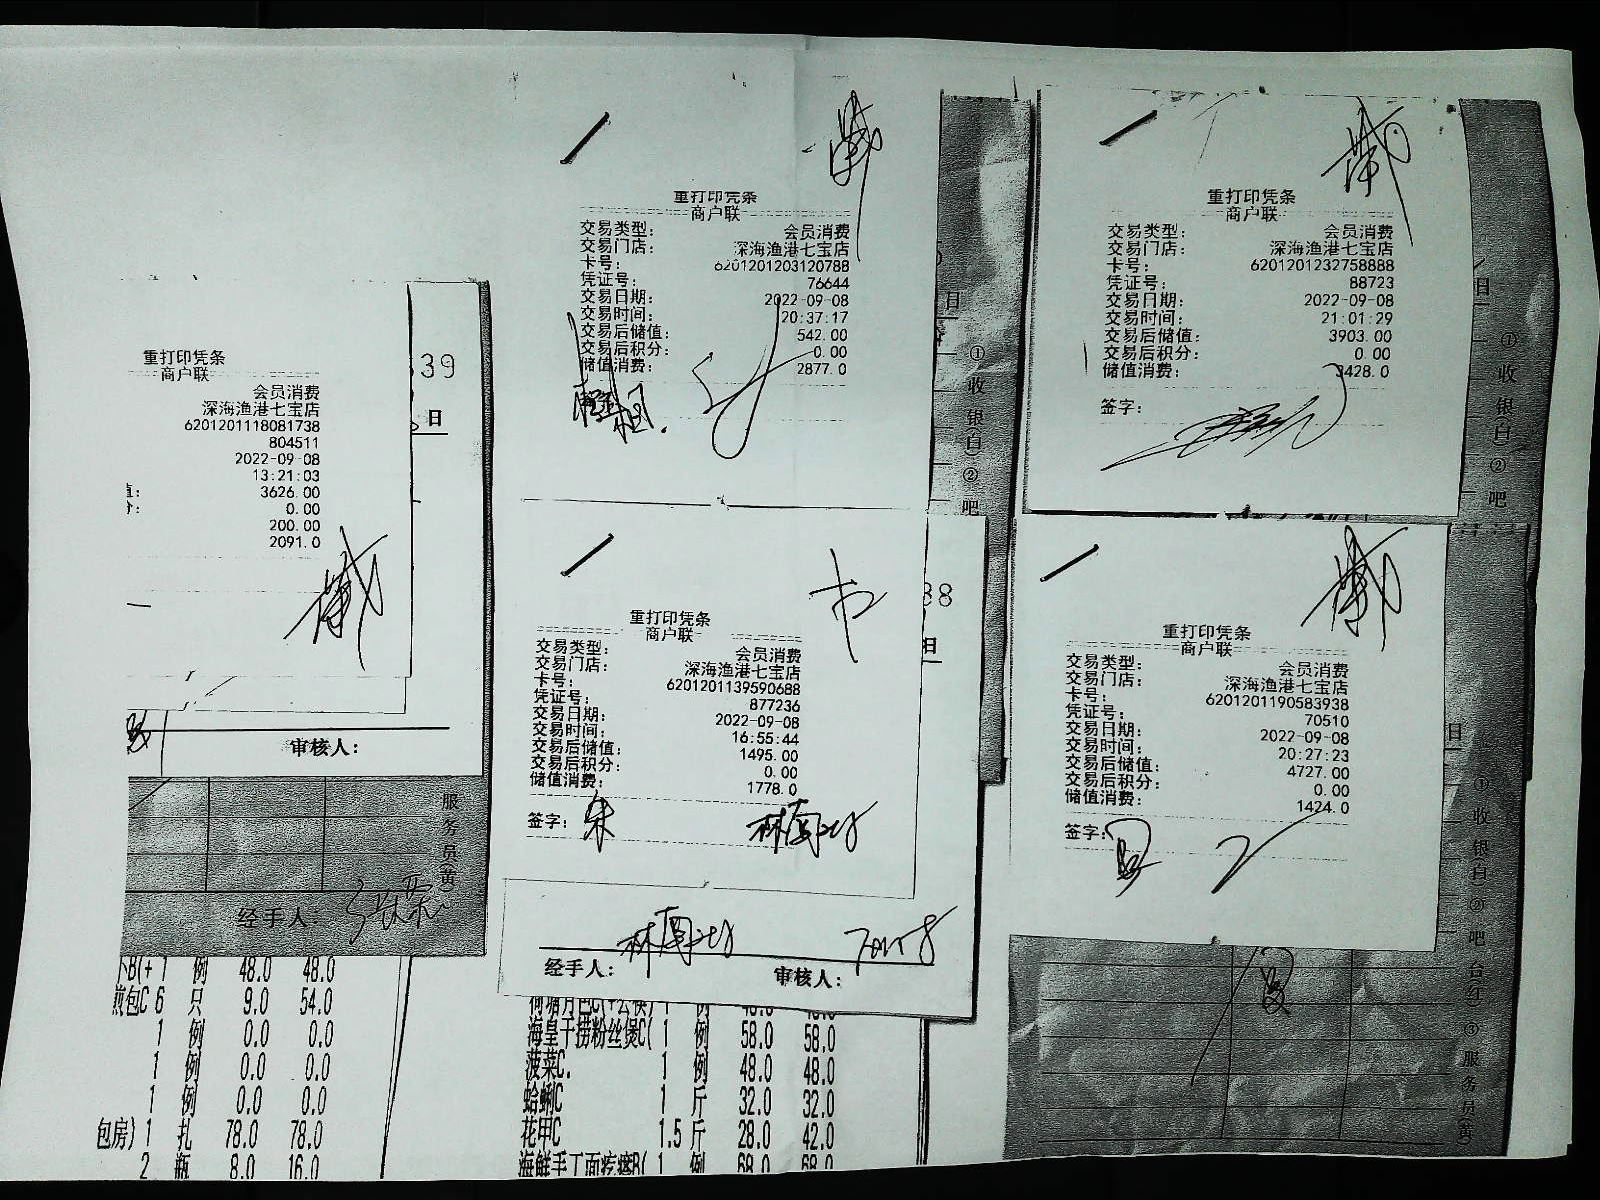 重打印凭条
商户联
会员消费
深海渔港七宝店
6201201118081738
804511
2022-09-08
13:21:03
值: 3626.00
分: 0.00
200.00
2091.0
39
日
审核人:
服务员(黄)
经手人:
B(+ 1 例 48.0 48.0
煎包C 6 只 9.0 54.0
1 例 0.0 0.0
1 例 0.0 0.0
1 例 0.0 0.0
包房) 1 扎 78.0 78.0
2 瓶 8.0 16.0
重打印凭条
商户联
交易类型: 会员消费
交易门店: 深海渔港七宝店
卡号: 6201201203120788
凭证号: 76644
交易日期: 2022-09-08
交易时间: 20:37:17
交易后储值: 542.00
交易后积分: 0.00
储值消费: 2877.0
日
①收银(白)②吧
重打印凭条
商户联
交易类型: 会员消费
交易门店: 深海渔港七宝店
卡号: 6201201139590688
凭证号: 877236
交易日期: 2022-09-08
交易时间: 16:55:44
交易后储值: 1495.00
交易后积分: 0.00
储值消费: 1778.0
签字: 朱
38
日
经手人:
审核人:
海皇干捞粉丝煲C( 1 例 58.0 58.0
菠菜C. 1 例 48.0 48.0
蛤蜊C 1 斤 32.0 32.0
花甲C 1.5 斤 28.0 42.0
海鲜手丁面疙瘩B( 1 例 68.0 68.0
重打印凭条
商户联
交易类型: 会员消费
交易门店: 深海渔港七宝店
卡号: 6201201232758888
凭证号: 88723
交易日期: 2022-09-08
交易时间: 21:01:29
交易后储值: 3903.00
交易后积分: 0.00
储值消费: 3428.0
签字:
日
①收银(白)②吧
重打印凭条
商户联
交易类型: 会员消费
交易门店: 深海渔港七宝店
卡号: 6201201190583938
凭证号: 70510
交易日期: 2022-09-08
交易时间: 20:27:23
交易后储值: 4727.00
交易后积分: 0.00
储值消费: 1424.0
签字:
日
①收银(白)②吧台(红)③服务员(黄)